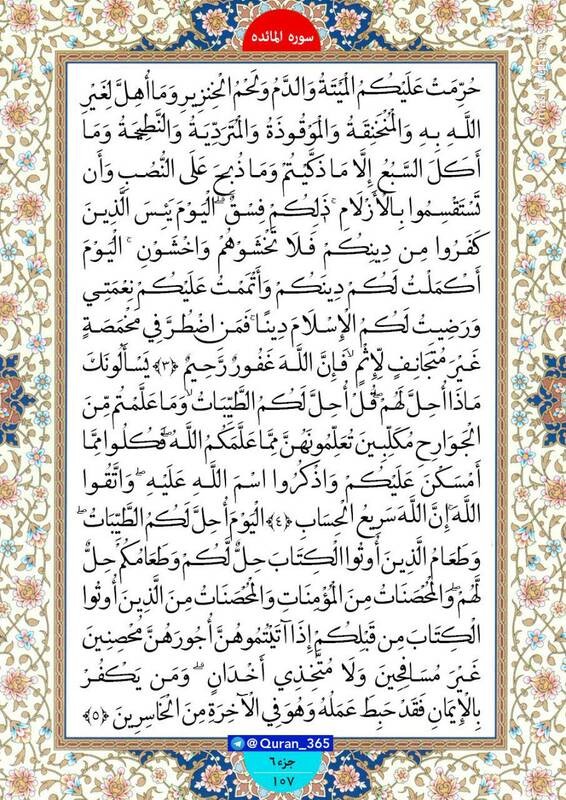 سوره المائده
حُرِّمَتْ عَلَيْكُمُ الْمَيْتَةُ وَالدَّمُ وَلَحْمُ الْخِنزِيرِ وَمَا أُهِلَّ لِغَيْرِ
اللَّهِ بِهِ وَالْمُنْخَنِقَةُ وَالْمَوْقُوذَةُ وَالْمُتَرَدِّيَةُ وَالنَّطِيحَةُ وَمَا
أَكَلَ السَّبُعُ إِلَّا مَا ذَكَّيْتُمْ وَمَا ذُبِحَ عَلَى النُّصُبِ وَأَن
تَسْتَقْسِمُوا بِالْأَزْلَامِ ۚ ذَٰلِكُمْ فِسْقٌ ۗ الْيَوْمَ يَئِسَ الَّذِينَ
كَفَرُوا مِن دِينِكُمْ فَلَا تَخْشَوْهُمْ وَاخْشَوْنِ ۚ الْيَوْمَ
أَكْمَلْتُ لَكُمْ دِينَكُمْ وَأَتْمَمْتُ عَلَيْكُمْ نِعْمَتِي
وَرَضِيتُ لَكُمُ الْإِسْلَامَ دِينًا ۚ فَمَنِ اضْطُرَّ فِي مَخْمَصَةٍ
غَيْرَ مُتَجَانِفٍ لِّإِثْمٍ ۙ فَإِنَّ اللَّهَ غَفُورٌ رَّحِيمٌ ﴿٣﴾ يَسْأَلُونَكَ
مَاذَا أُحِلَّ لَهُمْ ۖ قُلْ أُحِلَّ لَكُمُ الطَّيِّبَاتُ ۙ وَمَا عَلَّمْتُم مِّنَ
الْجَوَارِحِ مُكَلِّبِينَ تُعَلِّمُونَهُنَّ مِمَّا عَلَّمَكُمُ اللَّهُ ۖ فَكُلُوا مِمَّا
أَمْسَكْنَ عَلَيْكُمْ وَاذْكُرُوا اسْمَ اللَّهِ عَلَيْهِ ۖ وَاتَّقُوا
اللَّهَ ۚ إِنَّ اللَّهَ سَرِيعُ الْحِسَابِ ﴿٤﴾ الْيَوْمَ أُحِلَّ لَكُمُ الطَّيِّبَاتُ ۖ
وَطَعَامُ الَّذِينَ أُوتُوا الْكِتَابَ حِلٌّ لَّكُمْ وَطَعَامُكُمْ حِلٌّ
لَّهُمْ ۖ وَالْمُحْصَنَاتُ مِنَ الْمُؤْمِنَاتِ وَالْمُحْصَنَاتُ مِنَ الَّذِينَ أُوتُوا
الْكِتَابَ مِن قَبْلِكُمْ إِذَا آتَيْتُمُوهُنَّ أُجُورَهُنَّ مُحْصِنِينَ
غَيْرَ مُسَافِحِينَ وَلَا مُتَّخِذِي أَخْدَانٍ ۗ وَمَن يَكْفُرْ
بِالْإِيمَانِ فَقَدْ حَبِطَ عَمَلُهُ وَهُوَ فِي الْآخِرَةِ مِنَ الْخَاسِرِينَ ﴿٥﴾
@Quran_365
جزء ٦
١٥٧